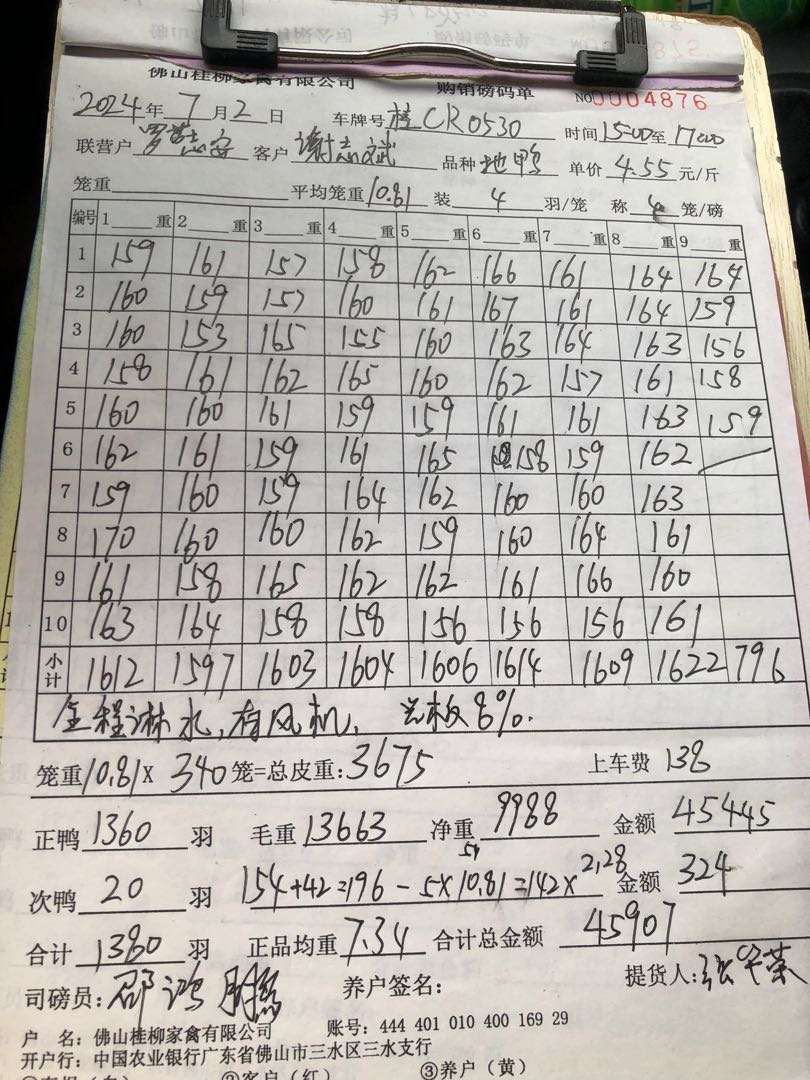 佛山桂柳家禽有限公司 购销磅码单 NO0004876
2024年7月2日 车牌号 桂CR0530 时间15:00至17:00
联营户 客户 谢志斌 品种 地鸭 单价 4.55 元/斤
笼重 平均笼重 10.81 装 4 羽/笼 称 4 笼/磅
编号 1 重 2 重 3 重 4 重 5 重 6 重 7 重 8 重 9 重
1 159 161 157 158 162 166 161 164 164
2 160 159 157 160 161 167 161 164 159
3 160 153 165 155 160 163 164 163 156
4 158 161 162 165 160 162 157 161 158
5 160 160 161 159 159 161 161 163 159
6 162 161 159 161 165 158 159 162
7 159 160 159 164 162 160 160 163
8 170 160 160 162 159 160 164 161
9 161 158 165 162 162 161 166 160
10 163 164 158 158 156 156 156 161
小计 1612 1597 1603 1604 1606 1614 1609 1622 796
全程淋水,有风机, 光板8%.
笼重10.81×340笼=总皮重:3675 上车费 138
正鸭 1360 羽 毛重 13663 净重 9988 金额 45445
次鸭 20 羽 154+42=196-5×10.81=142×2.28 金额 324
合计 1380 羽 正品均重 7.34 合计总金额 45907
司磅员: 邵鸿 养户签名: 提货人: 张华荣
户 名: 佛山桂柳家禽有限公司 账号: 444 401 010 400 169 29
开户行: 中国农业银行广东省佛山市三水区三水支行
②客户(红) ③养户(黄)